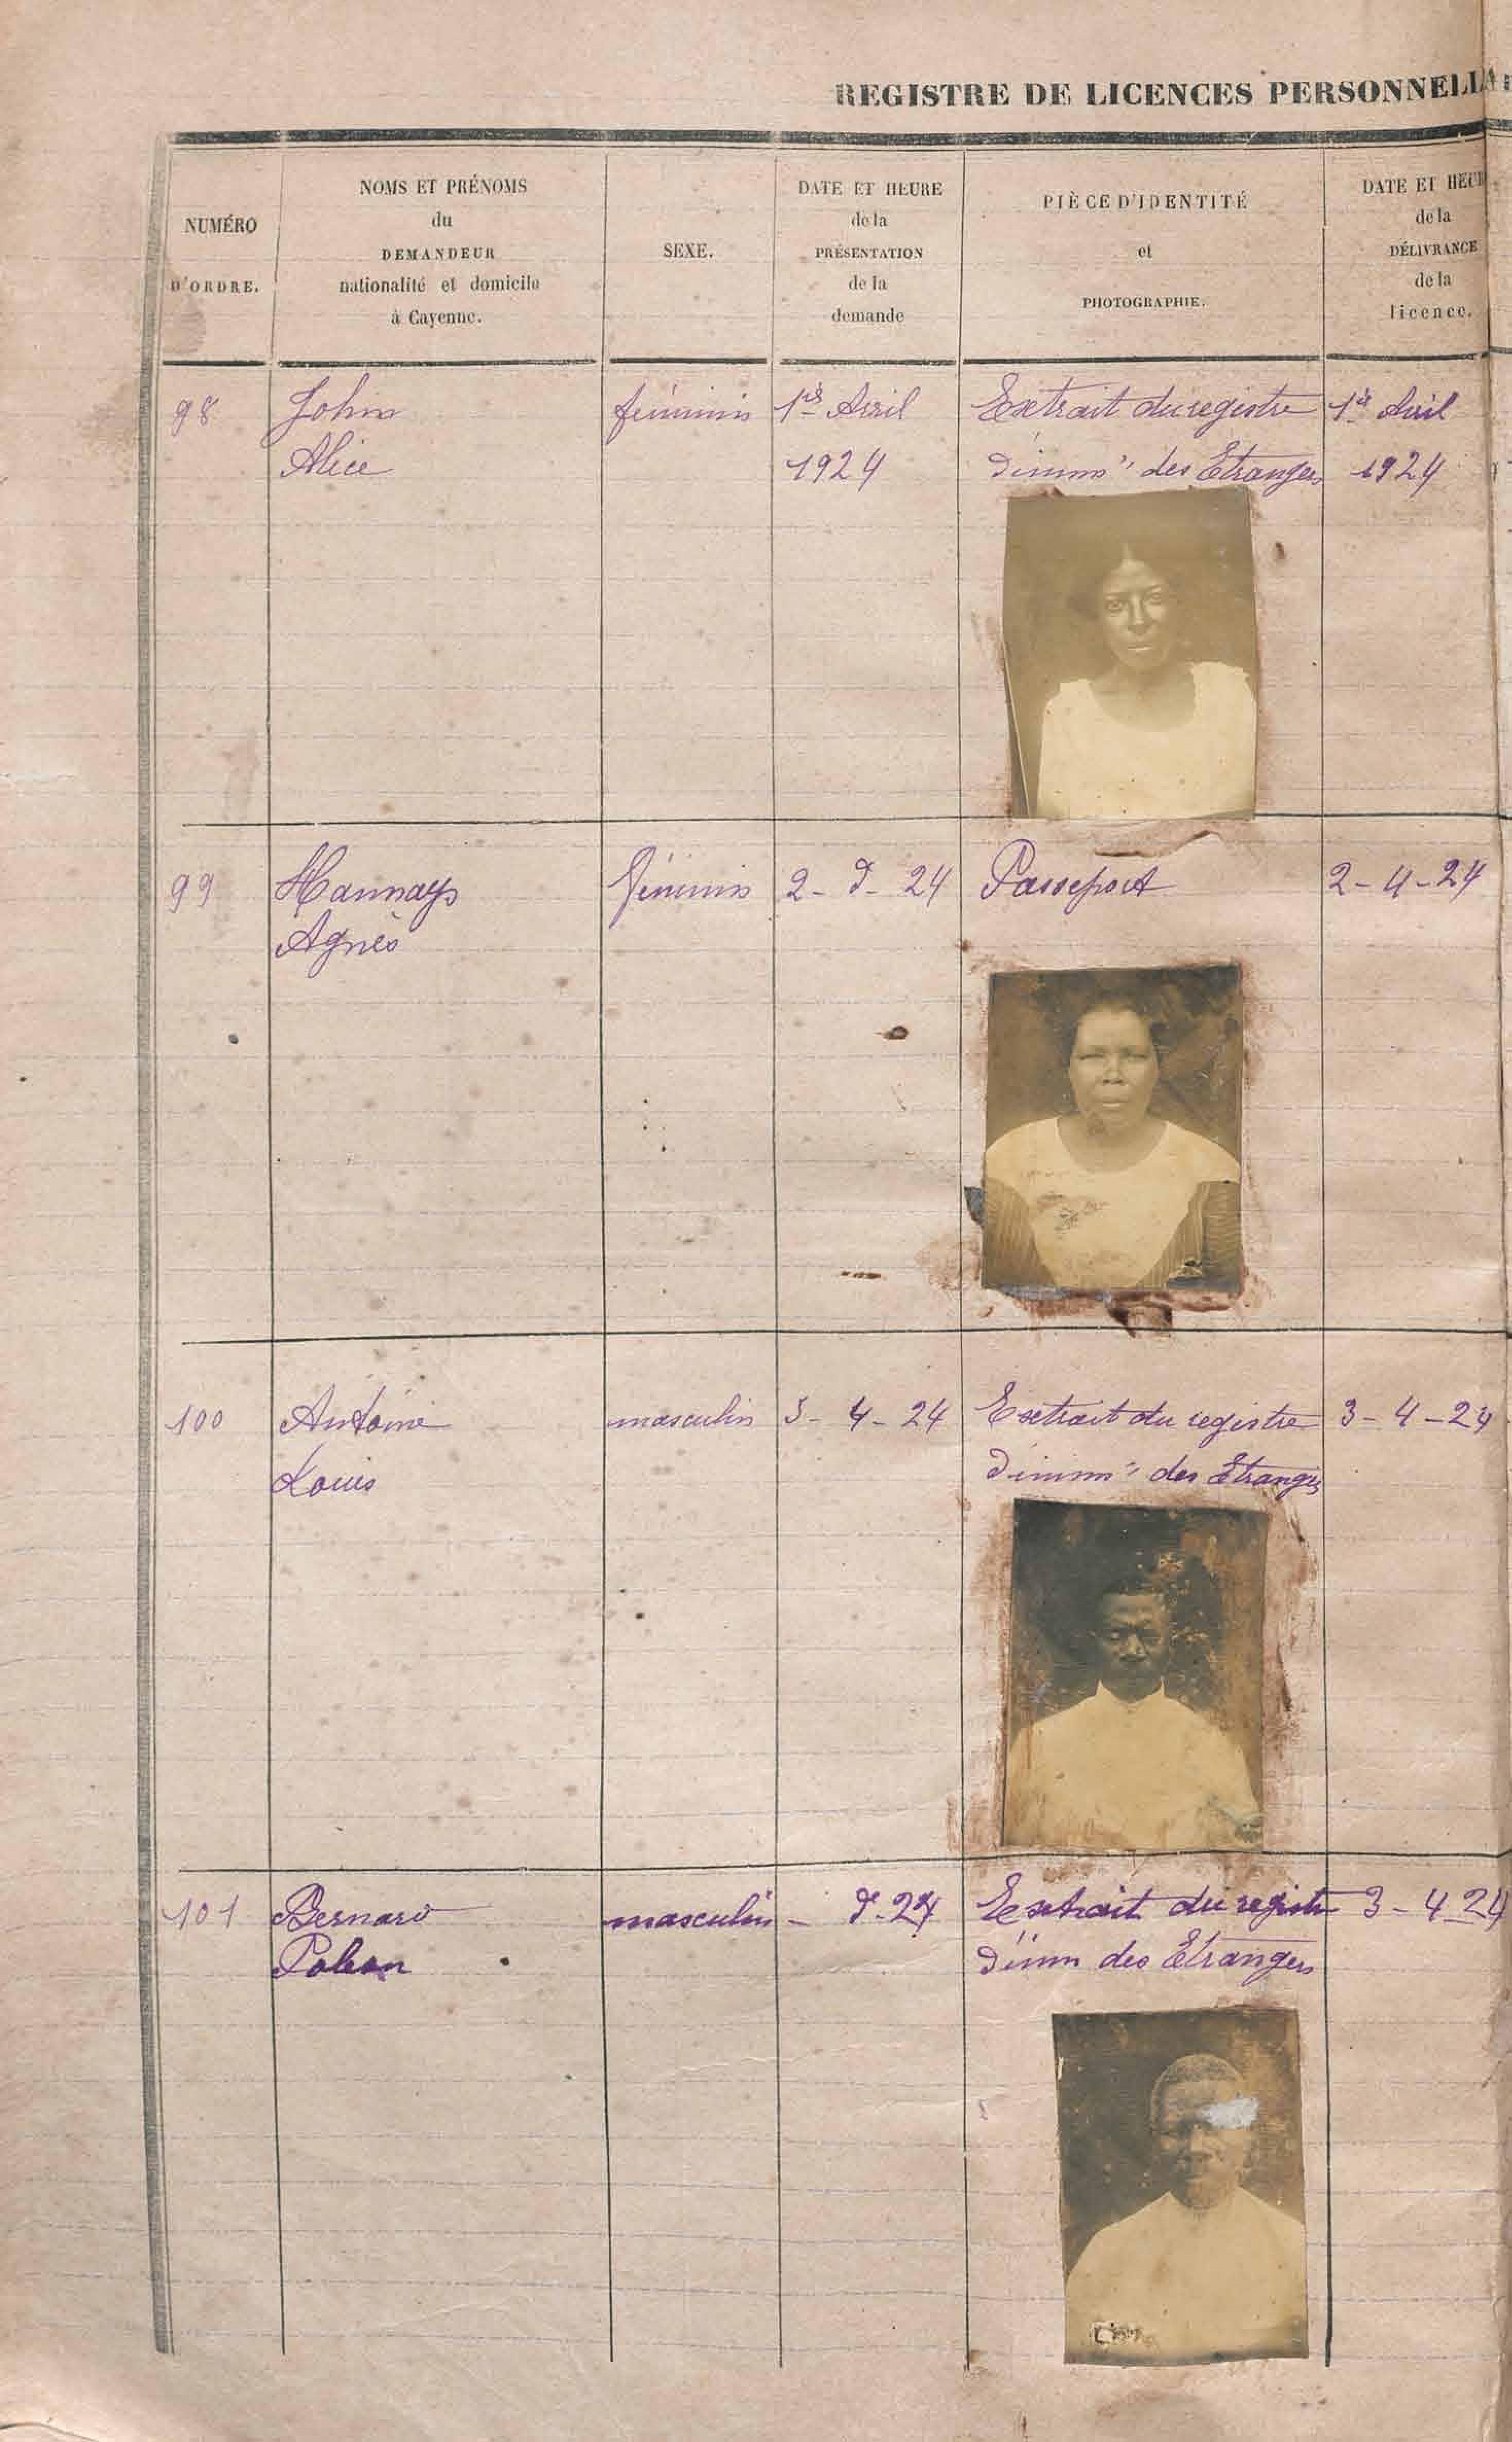 REGISTRE DE LICENCES PERSONNELL
NUMÉRO
D'ORDRE.
NOMS ET PRÉNOMS
du
DEMANDEUR
nationalité et domicile
à Cayenne.
SEXE.
DATE ET HEURE
de la
PRÉSENTATION
de la
demande
PIÈCE D'IDENTITÉ
et
PHOTOGRAPHIE.
DATE ET HEU
de la
DÉLIVRANCE
de la
licence.
98
John
Alice
féminin
1er Avril
1924
Extrait du registre
d'imm des Etrangers
1er Avril
1924
99
Hannays
Agnès
féminin
2 - d - 24
Passeport
2 - 4 - 24
100
Antoine
Louis
masculin
3 - 4 - 24
Extrait du registre
d'imm des Etrangers
3 - 4 - 24
101
Bernard
masculin
- d - 24
Extrait du registre
d'imm des Etrangers
3 - 4 24